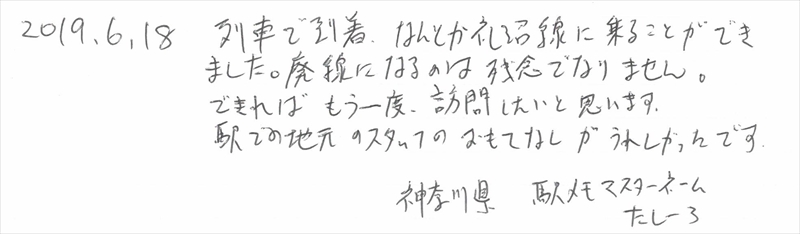 2019.6.18 列車で到着、なんとか札沼線に乗ることができ
ました。廃線になるのは残念でなりません。
できればもう一度、訪問したいと思います。
駅での地元のスタッフのおもてなしがうれしかったです。
神奈川県 駅メモマスターネーム
たしーろ